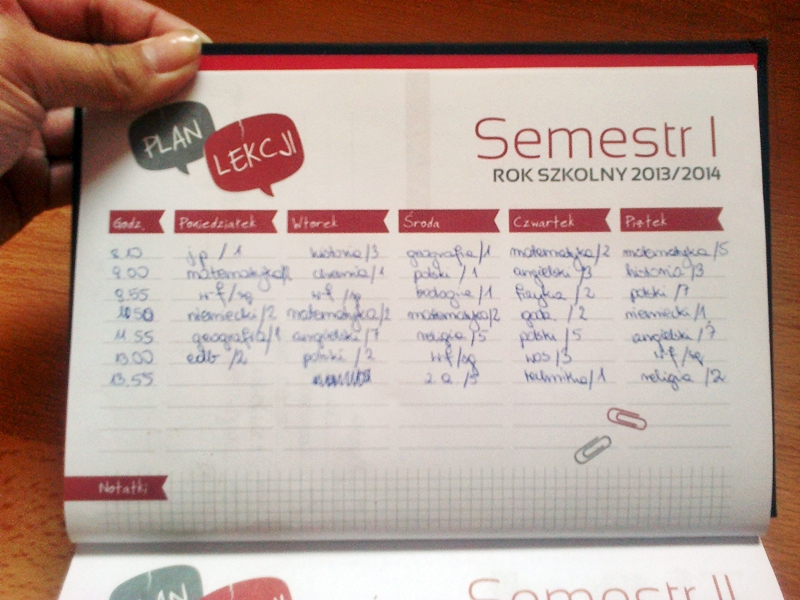 PLAN LEKCJI
Semestr I
ROK SZKOLNY 2013/2014
Godz. Poniedziałek Wtorek Środa Czwartek Piątek
8.10 jp / 1 historia/3 geografia/1 matematyka/2 matematyka/5
9.00 matematyka/2 chemia/1 polski /1 angielski /3 historia /3
9.55 w-f/sg w-f /sg biologia /1 fizyka /2 polski /7
10.50 niemiecki/2 matematyka/2 matematyka/2 /2 niemiecki/1
11.55 geografia/1 angielski/7 religia /5 polski /5 angielski /7
13.00 edb /2 polski /2 w-f/sg wos /3 w-f /sg
13.55 z.a /5 technika/1 religia /2
Notatki
PLAN LEKCJI
Semestr II